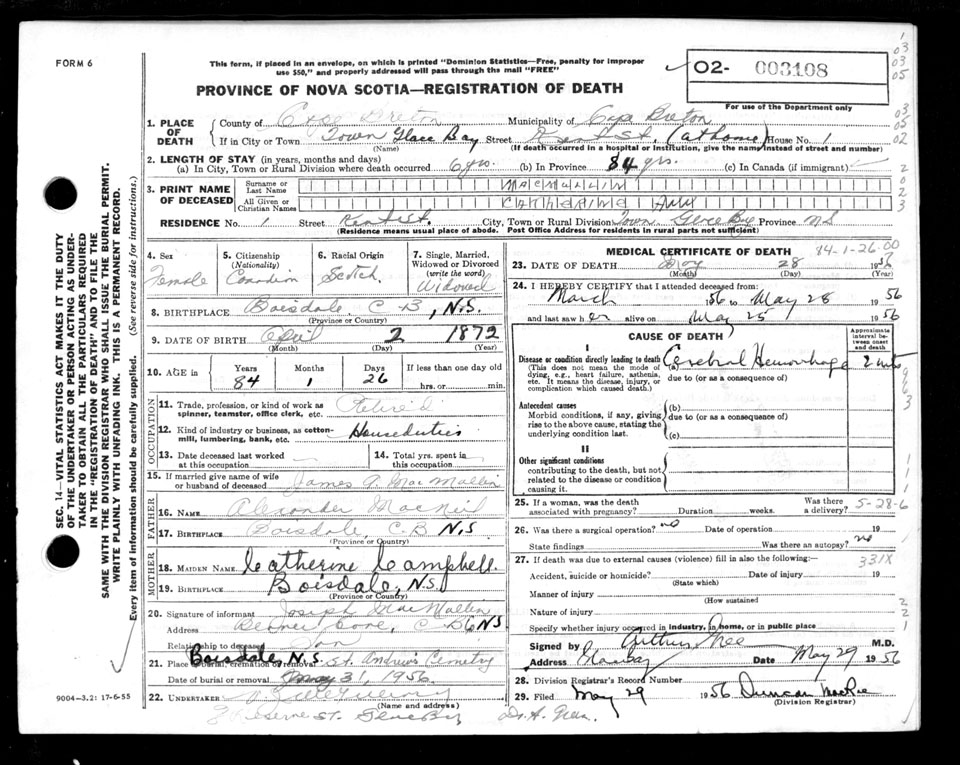 FORM 6
This form, if placed in an envelope, on which is printed "Dominion Statistics—Free, penalty for improper
use $50," and properly addressed will pass through the mail "FREE"
02- 003108
For use of the Department only
PROVINCE OF NOVA SCOTIA—REGISTRATION OF DEATH
1. PLACE OF DEATH
County of Cape Breton Municipality of Cape Breton
If in City or Town Town Glace Bay, Street (at home) House No. 1
(Name) (If death occurred in a hospital or institution, give the name instead of street and number)
2. LENGTH OF STAY (in years, months and days)
(a) In City, Town or Rural Division where death occurred 6 yrs. (b) In Province 84 yrs. (c) In Canada (if immigrant)
3. PRINT NAME OF DECEASED
Surname or Last Name MACMULLIN
All Given or Christian Names CATHERINE ANN
RESIDENCE No. 1 Street Kent St. City, Town or Rural Division Town Glace Bay Province N.S
(Residence means usual place of abode. Post Office Address for residents in rural parts not sufficient)
4. Sex
Female
5. Citizenship
(Nationality)
Canadian
6. Racial Origin
Scotch
7. Single, Married,
Widowed or Divorced
(write the word)
Widowed
8. BIRTHPLACE Boisdale, C-B, N.S.
(Province or Country)
9. DATE OF BIRTH April 2 1872
(Month) (Day) (Year)
10. AGE in
Years Months Days If less than one day old
84 1 26 hrs. or min.
OCCUPATION
11. Trade, profession, or kind of work as
spinner, teamster, office clerk, etc. Retired
12. Kind of industry or business, as cotton-
mill, lumbering, bank, etc. Houseduties
13. Date deceased last worked
at this occupation
14. Total yrs. spent in
this occupation
15. If married give name of wife
or husband of deceased James A. MacMullin
FATHER
16. NAME Alexander MacNeil
17. BIRTHPLACE Boisdale, C.B N.S
(Province or Country)
MOTHER
18. MAIDEN NAME Catherine Campbell.
19. BIRTHPLACE Boisdale, N.S.
(Province or Country)
20. Signature of informant Joseph MacMullin
Address Cove, C B N.S
Relationship to deceased Son
21. Place of burial, cremation or removal Boisdale, N.S. St. Andrews Cemetry
Date of burial or removal May 31, 1956.
22. UNDERTAKER
(Name and address)
Reserve St. Glace Bay
MEDICAL CERTIFICATE OF DEATH 84-1-26.00
23. DATE OF DEATH May 28 1956
(Month) (Day) (Year)
24. I HEREBY CERTIFY that I attended deceased from:
March 1956 to May 28 1956
and last saw her alive on May 25 1956
CAUSE OF DEATH
Approximate interval between onset and death
I
Disease or condition directly leading to death
(This does not mean the mode of dying, e.g., heart failure, asthenia, etc. It means the disease, injury, or complication which caused death.)
(a) Cerebral Hemorrhage
due to (or as a consequence of)
Antecedent causes
Morbid conditions, if any, giving rise to the above cause, stating the underlying condition last.
(b)
due to (or as a consequence of)
(c)
II
Other significant conditions
contributing to the death, but not related to the disease or condition causing it.
25. If a woman, was the death
associated with pregnancy? Duration weeks. Was there a delivery? 5-28-6
26. Was there a surgical operation? no Date of operation 19
State findings Was there an autopsy? no
27. If death was due to external causes (violence) fill in also the following:— 331X
Accident, suicide or homicide? Date of injury 19
(State which)
Manner of injury
(How sustained
Nature of injury
Specify whether injury occurred in industry, in home, or in public place
Signed by Arthur M.D.
Address Date May 29 1956
28. Division Registrar's Record Number
29. Filed May 29 1956 Duncan MacRae
(Division Registrar)
Dr. A. Green.
SEC. 14— VITAL STATISTICS ACT MAKES IT THE DUTY
OF THE UNDERTAKER OR PERSON ACTING AS UNDER-
TAKER TO OBTAIN ALL THE PARTICULARS REQUIRED
IN THE "REGISTRATION OF DEATH" AND TO FILE THE
SAME WITH THE DIVISION REGISTRAR WHO SHALL ISSUE THE BURIAL PERMIT.
WRITE PLAINLY WITH UNFADING INK. THIS IS A PERMANENT RECORD.
Every item of information should be carefully supplied. (See reverse side for instructions.)
9004-3.21 17-6-55